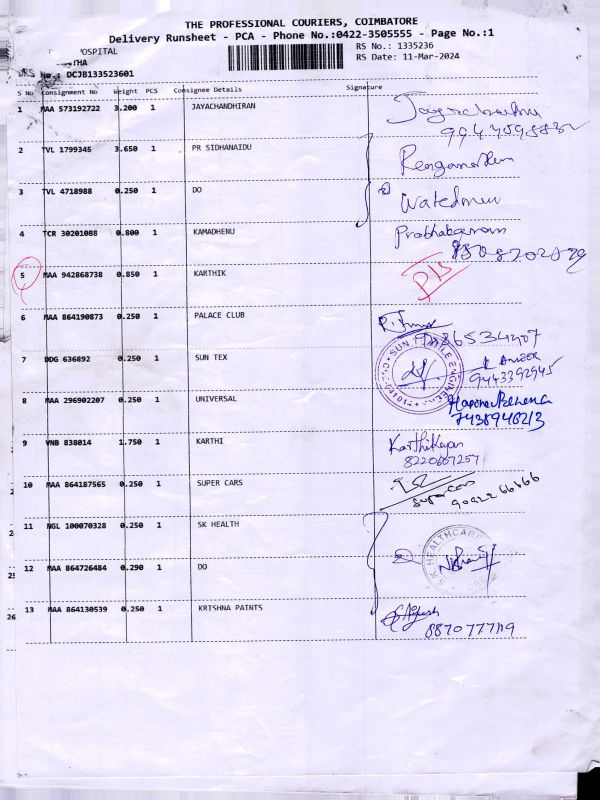 THE PROFESSIONAL COURIERS, COIMBATORE
Delivery Runsheet - PCA - Phone No.:0422-3505555 - Page No.:1
HOSPITAL RS No.: 1335236
THA RS Date: 11-Mar-2024
DRS No.: DCJB133523601
S No Consignment No Weight PCS Consignee Details Signature
1 MAA 573192722 3.200 1 JAYACHANDHIRAN
2 TVL 1799345 3.650 1 PR SIDHANAIDU
3 TVL 4718988 0.250 1 DO
4 TCR 30201088 0.800 1 KAMADHENU
5 MAA 942868738 0.850 1 KARTHIK
6 MAA 864190873 0.250 1 PALACE CLUB
7 DDG 636892 0.250 1 SUN TEX
9443392945
8 MAA 296902207 0.250 1 UNIVERSAL
7438946213
9 VNB 838014 1.750 1 KARTHI Karthikeyan
8220667257
10 MAA 864187565 0.250 1 SUPER CARS super cars
90422 66666
11 NGL 100070328 0.250 1 SK HEALTH
12 MAA 864726484 0.290 1 DO
13 MAA 864130539 0.250 1 KRISHNA PAINTS
26 8870777119